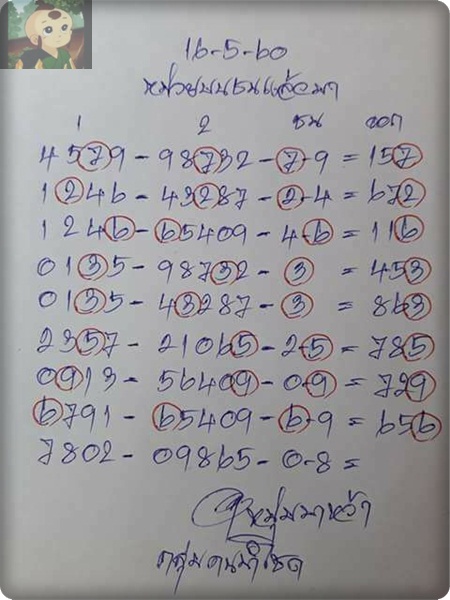 16-5-60
หน่วยบนชนแล้วมา
1 2 ชน ออก
4579 - 98732 - 7-9 = 157
1246 - 43287 - 2-4 = 672
1246 - 65409 - 4-6 = 116
0135 - 98732 - 3 = 453
0135 - 43287 - 3 = 863
2357 - 21065 - 2-5 = 785
0913 - 56409 - 0-9 = 729
6791 - 65409 - 6-9 = 656
7802 - 09865 - 0-8 =